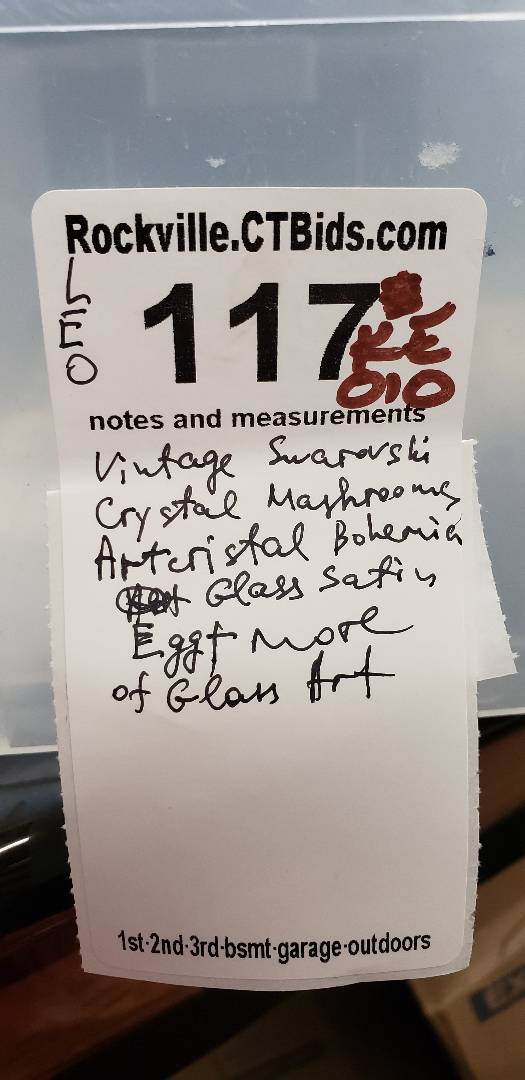 Rockville.CTBids.com
LEO
117
KE
010
notes and measurements
Vintage Swarovski
Crystal Mashrooms
Artcristal Bohemia
Glass Satin
Egg + More
of Glass Art
1st-2nd-3rd-bsmt-garage-outdoors